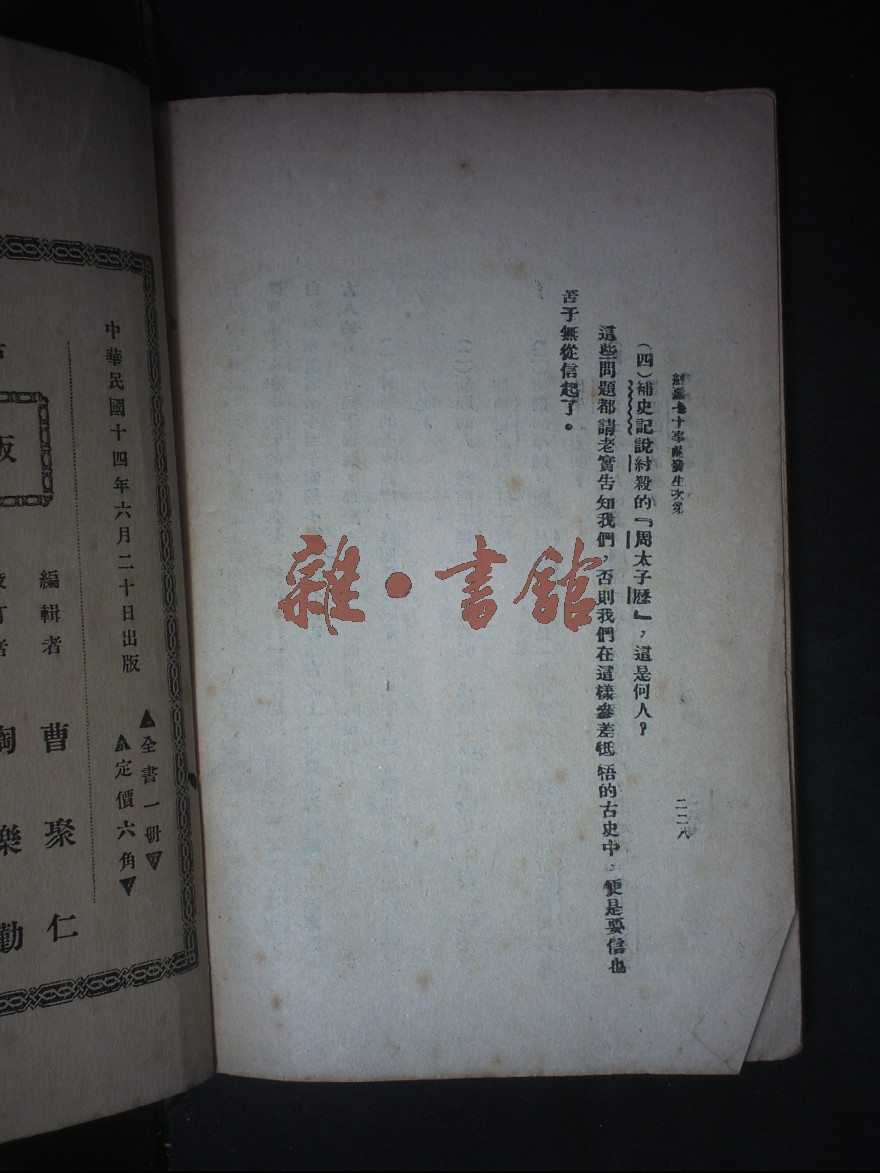 紂惡七十事的發生次第
二二八
(四)補史記說紂殺的『周太子歷』，這是何人？
這些問題都請老實告知我們，否則我們在這樣參差牴牾的古史中，便是要信也
苦于無從信起了。
雜·書館
中華民國十四年六月二十日出版
▲全書一册▼
▲定價六角▼
編輯者 曹聚仁
訂者 陶樂勤
版